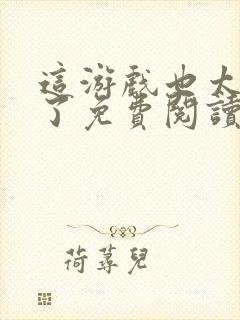 這游戲也太
了免費閱讀
荷蓴兒